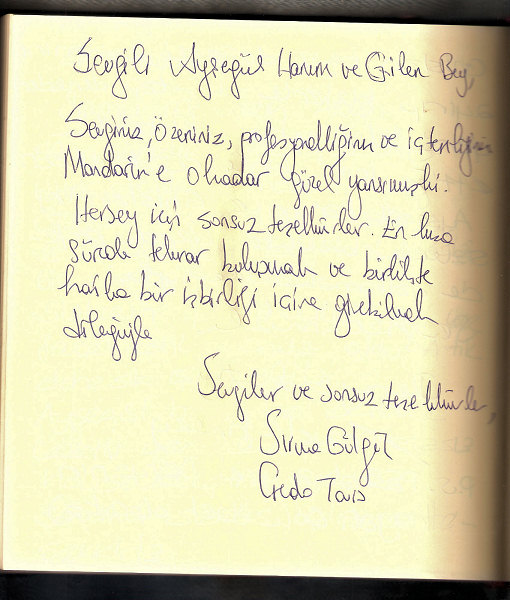 Sevgili Ayşegül Hanım ve Gülen Bey,
Sevginiz, özeniniz, profesyonelliğiniz ve içtenliğiniz
Mandarin'e o kadar güzel yansımış ki.
Herşey için sonsuz teşekkürler. En kısa
sürede tekrar buluşmak ve birlikte
harika bir işbirliği içine girebilmek
dileğiyle
Sevgiler ve sonsuz teşekkürler,
Sırma Güllgil
Credo Tours